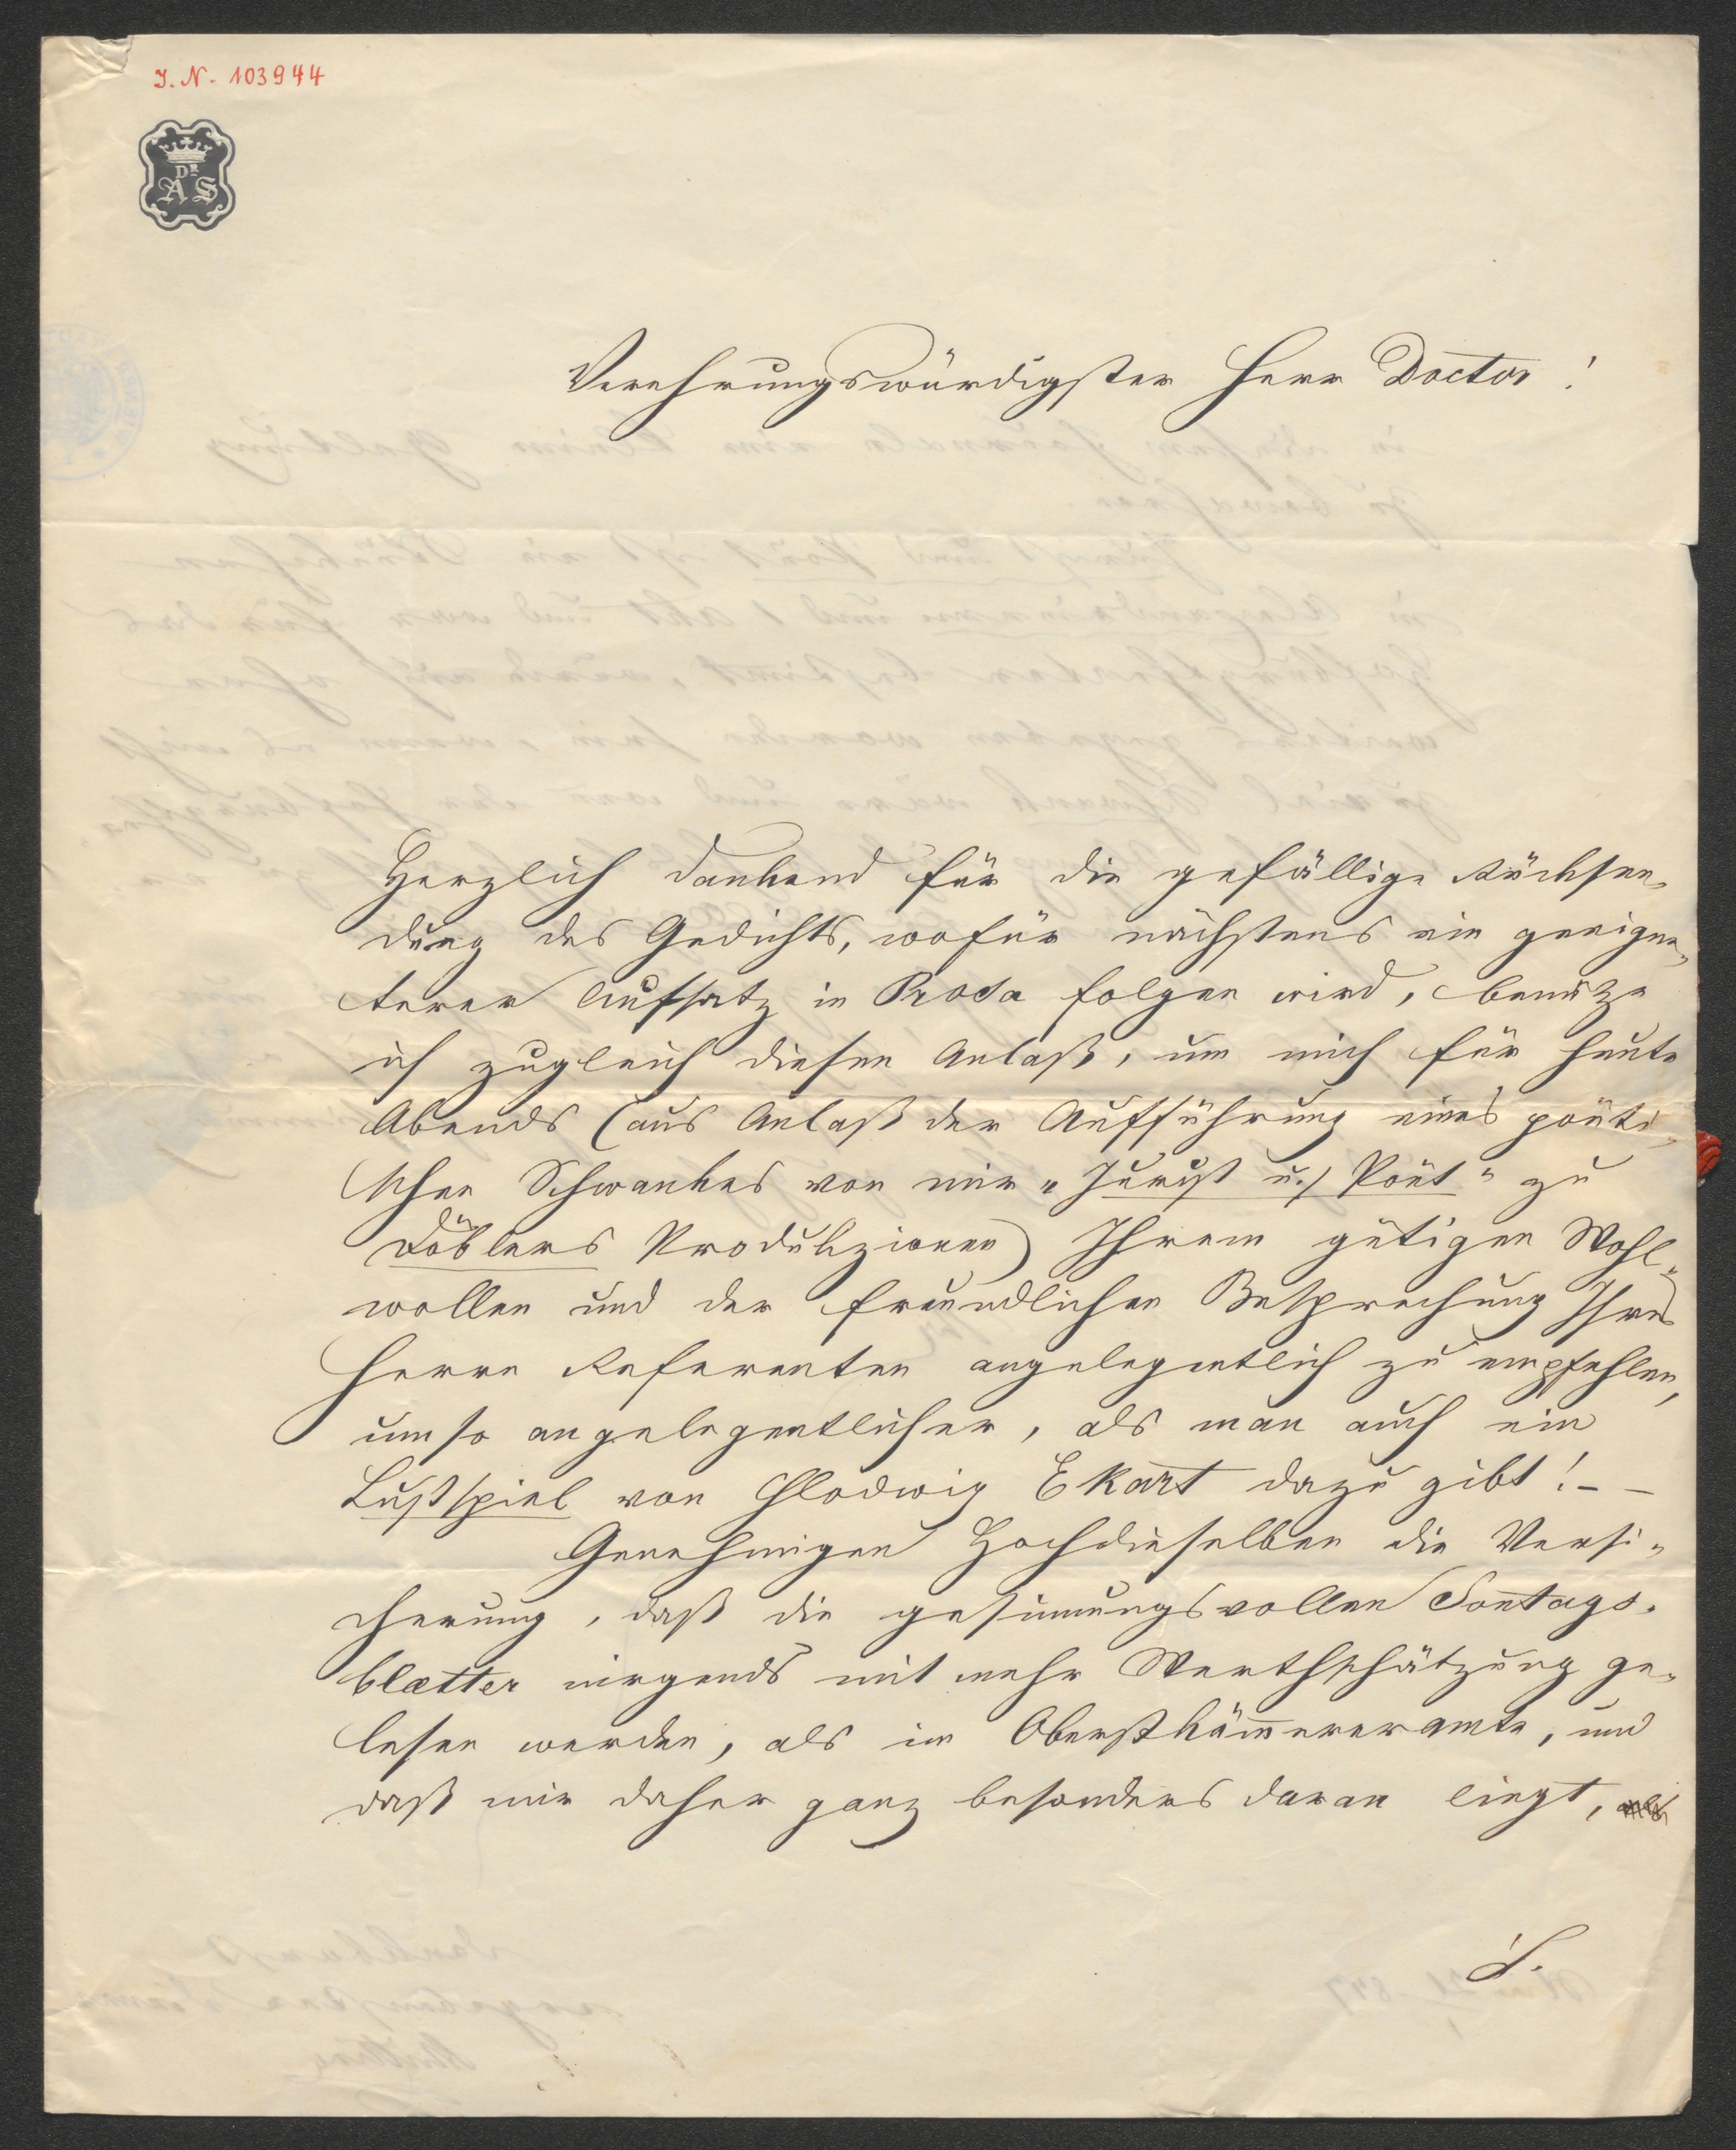 I.N. 103944
Dr
A S
Verehrungswürdigster Herr Doctor!
Herzlich dankend für die gefällige Rücksen„
dung des Gedichts, wofür nächstens ein geeigne„
terer Aufsatz in Prosa folgen wird, benüze
ich zugleich diesen Anlaß, um mich für heute
Abends (aus Anlaß der Aufführung eines poëti„
schen Schwankes von mir „Jurist u./ Poët" zu
Döblers Produkzionen) Ihrem gütigen Wohl„
wollen und der freundlichen Besprechung Ihres
Herrn Referenten angelegentlich zu empfehlen,
um so angelegentlicher, als man auch ein
Lustspiel von Chlodwig Ekart dazu gibt! – –
Genehmigen Hochdieselben die Versi„
cherung, daß die gesinnungsvollen Sontags„
blætter nirgends mit mehr Werthschätzung ge„
lesen werden, als im Oberstkäm̄ereramte, und
daß mir daher ganz besonders daran liegt,
S.